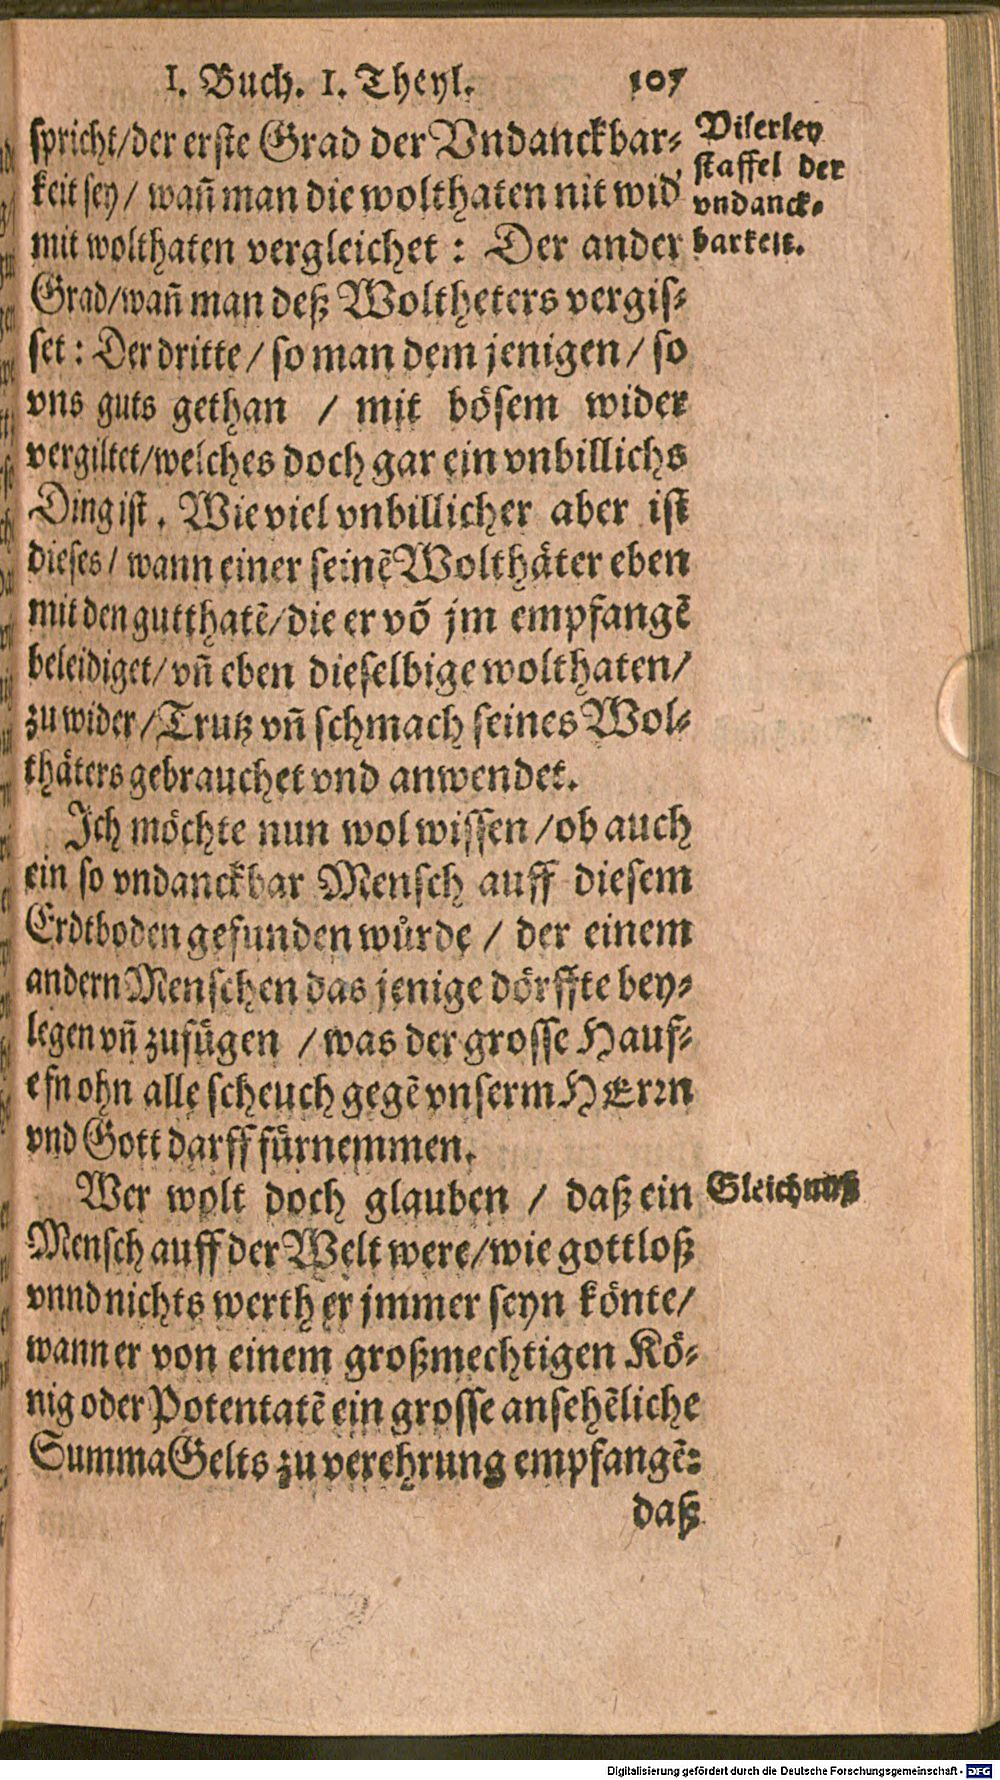 I. Buch. I. Theyl. 107
spricht/der erste Grad der Vndanckbar-
keit sey/ wañ man die wolthaten nit wid
mit wolthaten vergleichet : Der ander
Grad/wañ man deß Woltheters vergis-
set : Der dritte / so man dem jenigen / so
vns guts gethan / mit bösem wider
vergiltet/welches doch gar ein vnbillichs
Ding ist. Wie viel vnbillicher aber ist
dieses/ wann einer seinẽ Wolthäter eben
mit den gutthatẽ/die er võ jm empfangẽ
beleidiget/ vñ eben dieselbige wolthaten/
zu wider/Trutz vñ schmach seines Wol-
thäters gebrauchet vnd anwendet.
Ich möchte nun wol wissen /ob auch
ein so vndanckbar Mensch auff diesem
Erdtboden gefunden würde / der einem
andern Menschen das jenige dörffte bey-
legen vñ zufügen /was der grosse Hauf-
efn ohn alle scheuch gegẽ vnserm HErrn
vnd Gott darff fürnemmen.
Wer wolt doch glauben / daß ein
Mensch auff der Welt were/wie gottloß
vnnd nichts werth er jmmer seyn könte/
wann er von einem großmechtigen Kö-
nig oder Potentatẽ ein grosse ansehẽliche
Summa Gelts zu verehrung empfangẽ:
daß
Viserley
staffel der
vndanck-
barkeit.
Gleichnuß
Digitalisierung gefördert durch die Deutsche Forschungsgemeinschaft - DFG